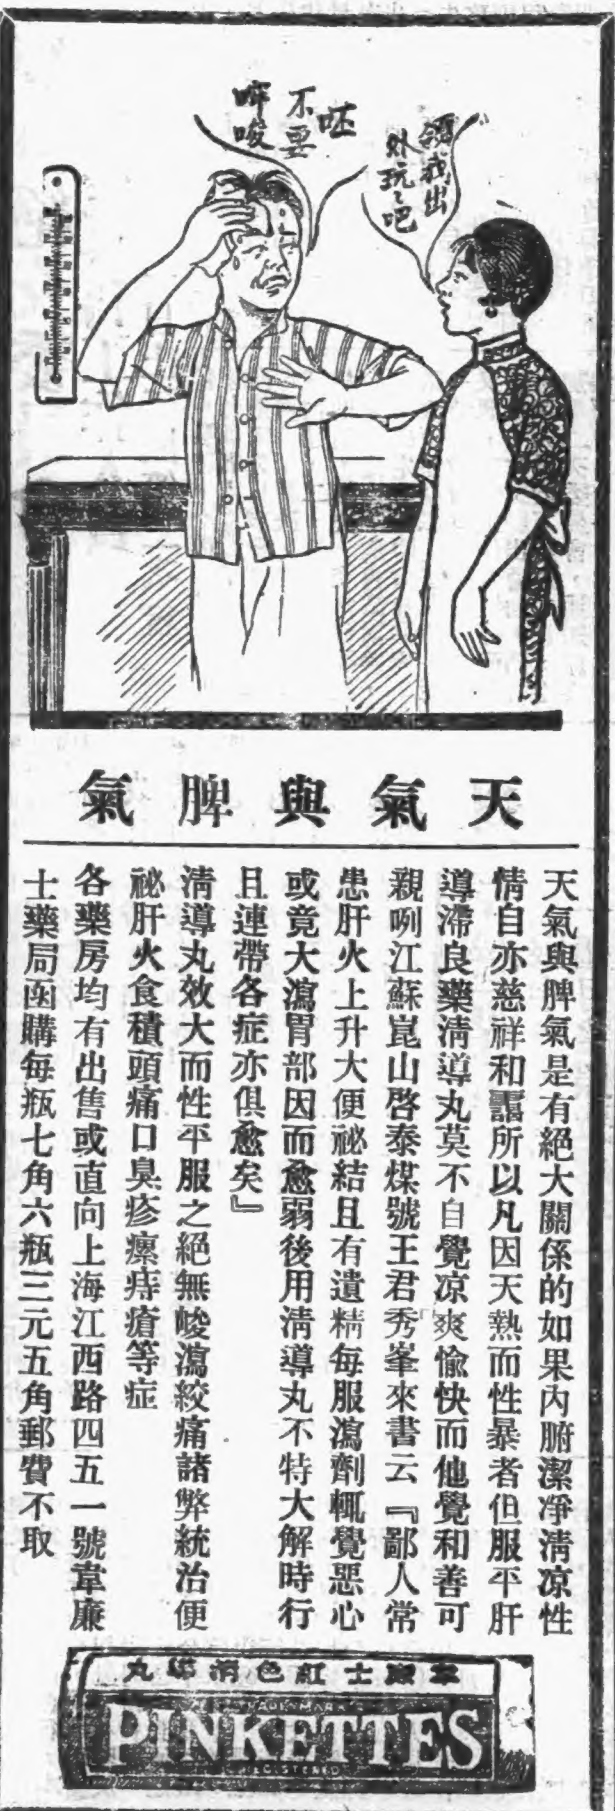 領我出
外玩玩吧
呸
不要
嘽唆
天氣與脾氣
天氣與脾氣是有絕大關係的如果內腑潔淨淸凉性
情自亦慈祥和靄所以凡因天熱而性暴者但服平肝
導滯良藥淸導丸莫不自覺凉爽愉快而他覺和善可
親咧江蘇崑山啓泰煤號王君秀峯來書云『鄙人常
患肝火上升大便祕結且有遺精每服瀉劑輒覺惡心
或竟大瀉胃部因而愈弱後用淸導丸不特大解時行
且連帶各症亦俱愈矣』
淸導丸效大而性平服之絕無峻瀉絞痛諸弊統治便
祕肝火食積頭痛口臭疹瘰痔瘡等症
各藥房均有出售或直向上海江西路四五一號韋廉
士藥局函購每瓶七角六瓶三元五角郵費不取
韋廉士紅色淸導丸
TRADE MARK
PINKETTES
REGISTERED